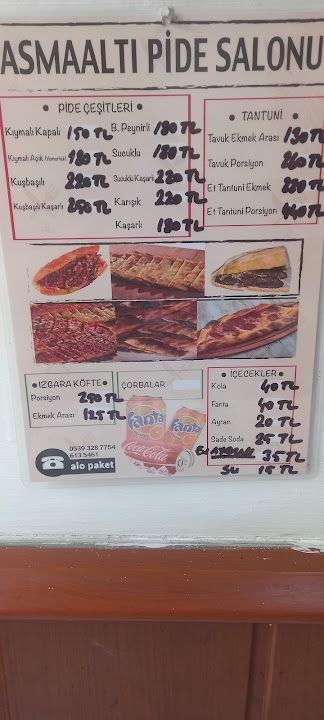 ASMAALTI PİDE SALONU
• PİDE ÇEŞİTLERİ •
Kıymalı Kapalı 150 TL
Kıymalı Açık (Yumurtalı) 180 TL
Kuşbaşılı 220 TL
Kuşbaşılı Kaşarlı 250 TL
B. Peynirli 180 TL
Sucuklu 180 TL
Sucuklu Kaşarlı 220 TL
Karışık 220 TL
Kaşarlı 180 TL
• TANTUNİ •
Tavuk Ekmek Arası 130 TL
Tavuk Porsiyon 260 TL
Et Tantuni Ekmek
Et Tantuni Porsiyon 440 TL
• IZGARA KÖFTE •
Porsiyon 250 TL
Ekmek Arası 125 TL
ÇORBALAR
Fanta
Fanta
Coca-Cola
• İÇECEKLER •
Kola 40 TL
Fanta 40 TL
Ayran 20 TL
Sade Soda 25 TL
35 TL
Su 15 TL
0539 328 7754
613 5461
alo paket